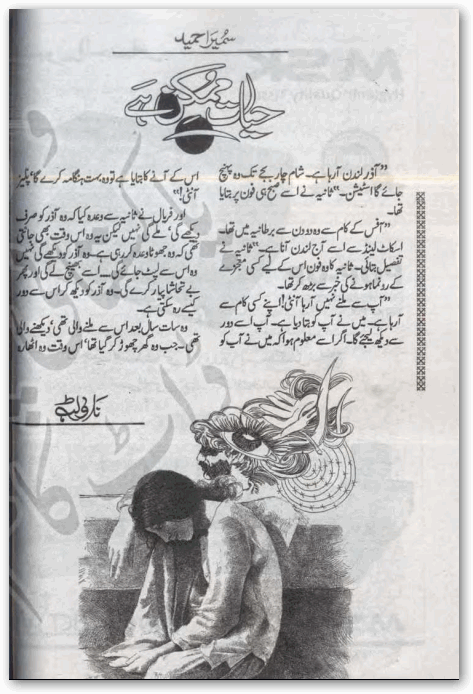 سمیرا حمید
حیات ممکن ہے
”آذر لندن آ رہا ہے۔ شام چار بجے تک وہ پہنچ
جائے گا اسٹیشن۔“ ثانیہ نے اسے صبح ہی فون پر بتایا
تھا۔
”آفس کے کام سے وہ دو دن سے برطانیہ میں تھا۔
اسکاٹ لینڈ سے اسے آج لندن آنا ہے۔“ ثانیہ نے
تفصیل بتائی۔ ثانیہ کا وہ فون اس کے لیے کسی معجزے
کے رونما ہونے کی خبر سے بڑھ کر تھا۔
”آپ سے ملنے نہیں آ رہا آنٹی! اپنے کسی کام سے
آ رہا ہے۔ میں نے آپ کو بتا دیا ہے۔ آپ اسے دور
سے دیکھ لیجئے گا۔ اگر اسے معلوم ہوا کہ میں نے آپ کو
اس کے آنے کا بتایا ہے تو وہ بہت ہنگامہ کرے گا‘ پلیز
آنٹی!“
اور فریال نے ثانیہ سے وعدہ کیا کہ وہ آذر کو صرف
دیکھے گی‘ ملے گی نہیں لیکن یہ وہ اس وقت بھی جانتی
تھی کہ وہ جھوٹا وعدہ کر رہی ہے۔ وہ آذر کو دیکھے گی نہیں
وہ اس سے لپٹ جائے گی... اسے بھینچ لے گی اور پھر
بے تحاشا پیار کرے گی۔ وہ آذر کو دیکھ کر اس سے دور
کیسے رہ سکتی ہے۔
وہ سات سال بعد اس سے ملنے والی تھی‘ دیکھنے والی
تھی۔ جب وہ گھر چھوڑ کر گیا تھا‘ اس وقت وہ اٹھارہ
ناولٹ